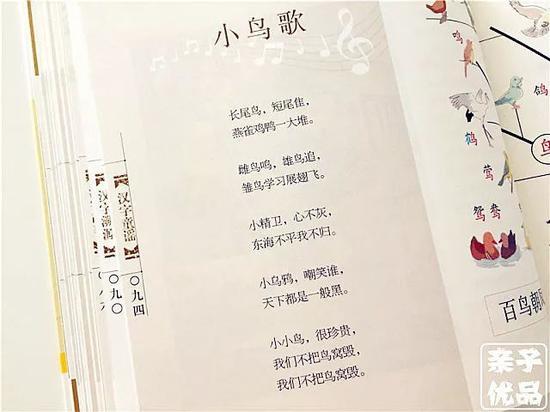 小鸟歌
长尾鸟，短尾隹，
燕雀鸡鸭一大堆。
雌鸟鸣，雄鸟追，
雏鸟学习展翅飞。
小精卫，心不灰，
东海不平我不归。
小乌鸦，嘲笑谁，
天下都是一般黑。
小小鸟，很珍贵，
我们不把鸟窝毁，
我们不把鸟窝毁。
〇九四
〇九〇
鸣
鸽
鹤
莺
鸳鸯
鸟
百鸟朝
亲子
优品